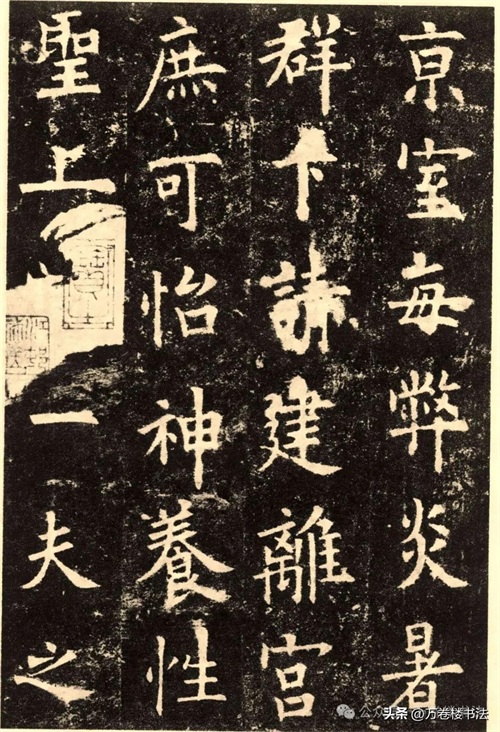 亰室每弊炎暑
群下請建離宫
庶可怡神養性
聖上一夫之
头条 @万卷楼书法